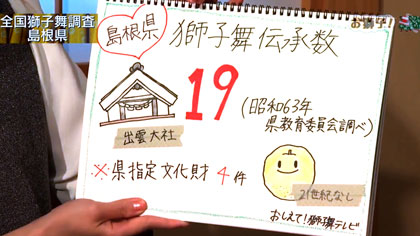 全国獅子舞調査
島根県
お獅子!
島根県
獅子舞伝承数
19
(昭和63年
県教育委員会調べ)
出雲大社
※県指定文化財 4件
21世紀なし
おしえて!獅子舞テレビ